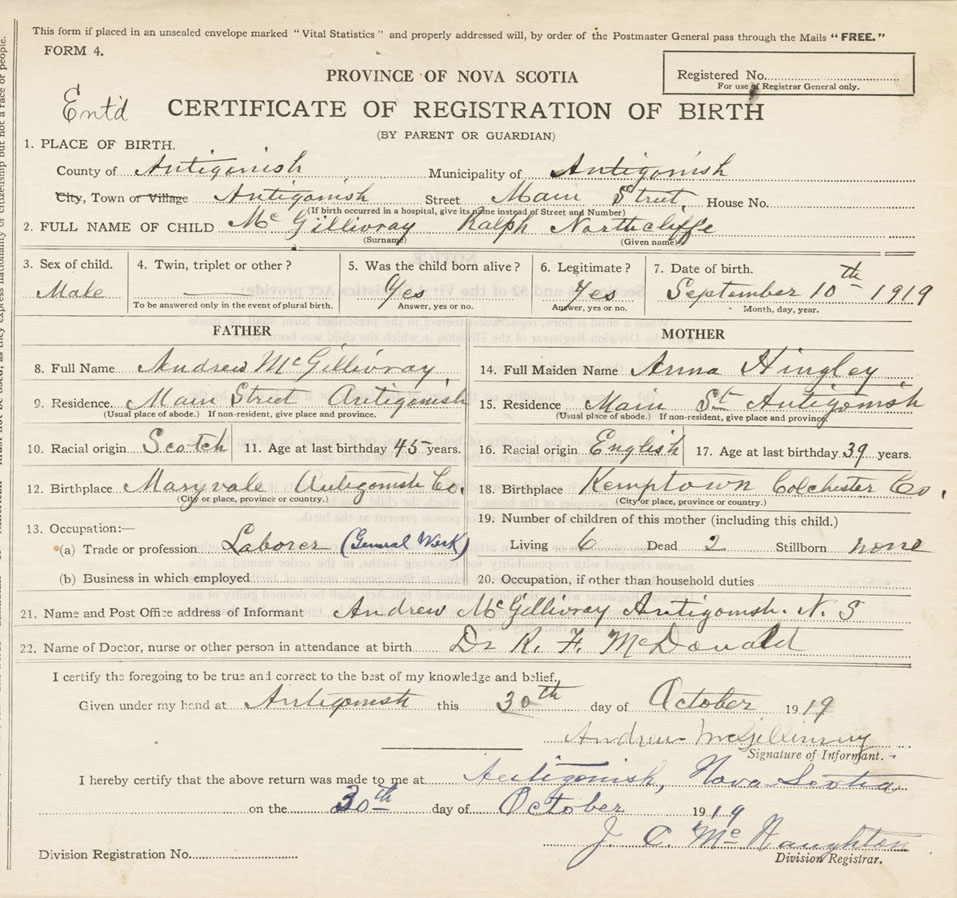 This form if placed in an unsealed envelope marked "Vital Statistics" and properly addressed will, by order of the Postmaster General pass through the Mails "FREE."
FORM 4.
Registered No.
For use of Registrar General only.
PROVINCE OF NOVA SCOTIA
Ent'd
CERTIFICATE OF REGISTRATION OF BIRTH
(BY PARENT OR GUARDIAN)
1. PLACE OF BIRTH.
County of Antigonish Municipality of Antigonish
City, Town or Village Antigonish Street Main Street, House No.
(If birth occurred in a hospital, give its name instead of Street and Number)
2. FULL NAME OF CHILD Mc Gillivray Ralph Northcliffe
(Surname) (Given name)
3. Sex of child. 4. Twin, triplet or other? 5. Was the child born alive? 6. Legitimate? 7. Date of birth.
Male Yes Yes September 10th 1919
To be answered only in the event of plural birth. Answer, yes or no. Answer, yes or no. Month, day, year.
FATHER
8. Full Name Andrew McGillivray
9. Residence. Main Street Antigonish
(Usual place of abode.) If non-resident, give place and province.
10. Racial origin Scotch 11. Age at last birthday 45 years.
12. Birthplace Maryvale Antigonish Co.
(City or place, province or country.)
13. Occupation:—
(a) Trade or profession Laborer (General Work)
(b) Business in which employed
MOTHER
14. Full Maiden Name Anna Hingley
15. Residence Main St Antigonish
(Usual place of abode.) If non-resident, give place and province.
16. Racial origin English 17. Age at last birthday 39 years.
18. Birthplace Kemptown Colchester Co.
(City or place, province or country.)
19. Number of children of this mother (including this child.)
Living 6 Dead 2 Stillborn none
20. Occupation, if other than household duties
21. Name and Post Office address of Informant Andrew McGillivray Antigonish. N. S
22. Name of Doctor, nurse or other person in attendance at birth Dr R. F. McDonald
I certify the foregoing to be true and correct to the best of my knowledge and belief.
Given under my hand at Antigonish this 30th day of October 1919
Andrew McGillivray
Signature of Informant.
I hereby certify that the above return was made to me at Antigonish, Nova Scotia
on the 30th day of October 1919
J. C. Mc Naughton
Division Registrar.
Division Registration No.